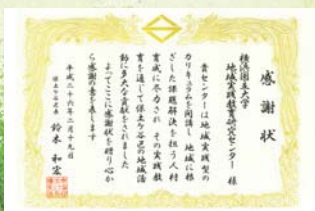 感謝状
横浜国立大学
地域実践教育研究センター 様
貴センターは地域実践型の
カリキュラムを開講し 地域に根
ざした課題解決を担う人材
育成に尽力され その実践教
育を通じて保土ケ谷区の地域活
動に多大な貢献をされました
よってここに感謝状を贈り心か
ら感謝の意を表します
平成二十六年二月十九日
保土ケ谷区長 鈴木 和宏